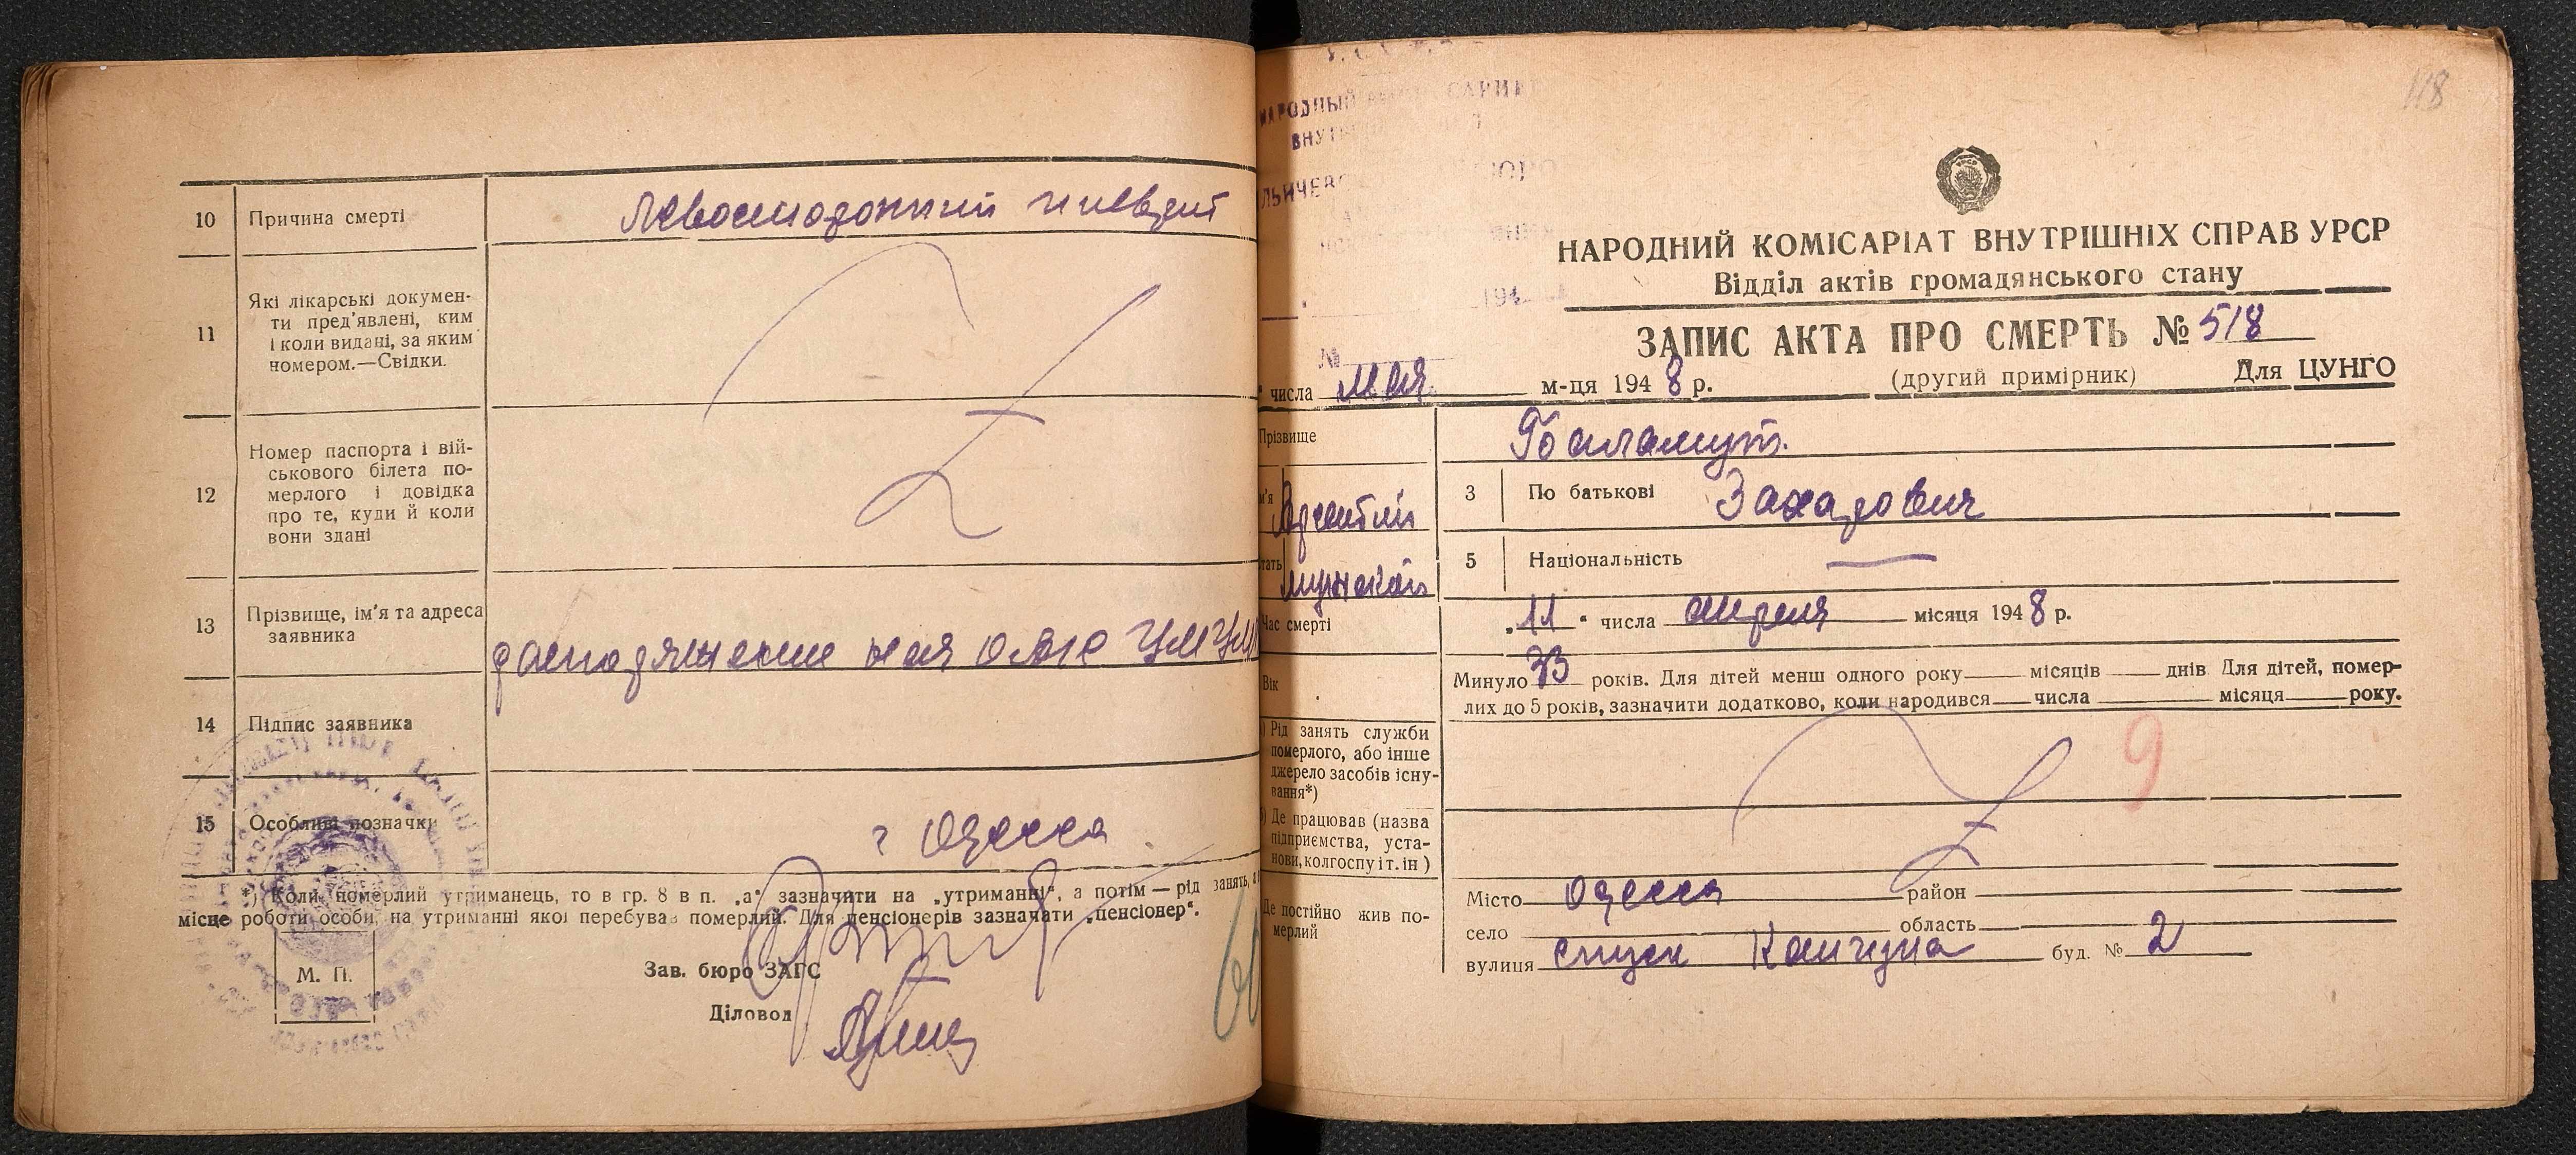 10 Причина смерті Левосторонний плеврит
11 Які лікарські докумен-
ти пред'явлені, ким
і коли видані, за яким
номером.—Свідки.
12 Номер паспорта і вій-
ськового білета по-
мерлого і довідка
про те, куди й коли
вони здані
13 Прізвище, ім'я та адреса
заявника
распоряжение
14 Підпис заявника
15 Особливі позначки
г Одесса
*) Коли померлий утриманець, то в гр. 8 в п. „а" зазначити на „утриманні", а потім — рід занять,
місце роботи особи, на утриманні якої перебував померлий. Для пенсіонерів зазначати „пенсіонер".
М. П.
Зав. бюро ЗАГС
Діловод
118
НАРОДНЫЙ
ВНУТ
1942
НАРОДНИЙ КОМІСАРІАТ ВНУТРІШНІХ СПРАВ УРСР
Відділ актів громадянського стану
ЗАПИС АКТА ПРО СМЕРТЬ № 518
№
числа мая м-ця 1948 р. (другий примірник) Для ЦУНГО
Прізвище Баламут.
м'я Арсентий 3 По батькові Захарович
тать мужской 5 Національність —
Час смерті „11" числа апреля місяця 1948 р.
Вік Минуло 73 років. Для дітей менш одного року місяців днів Для дітей, помер-
лих до 5 років, зазначити додатково, коли народився числа місяця року.
) Рід занять служби
померлого, або інше
джерело засобів існу-
вання*)
9
) Де працював (назва
підприємства, уста-
нови, колгоспу і т. ін )
Де постійно жив по-
мерлий
Місто Одесса район
село область
вулиця спуск Кангуна буд. № 2